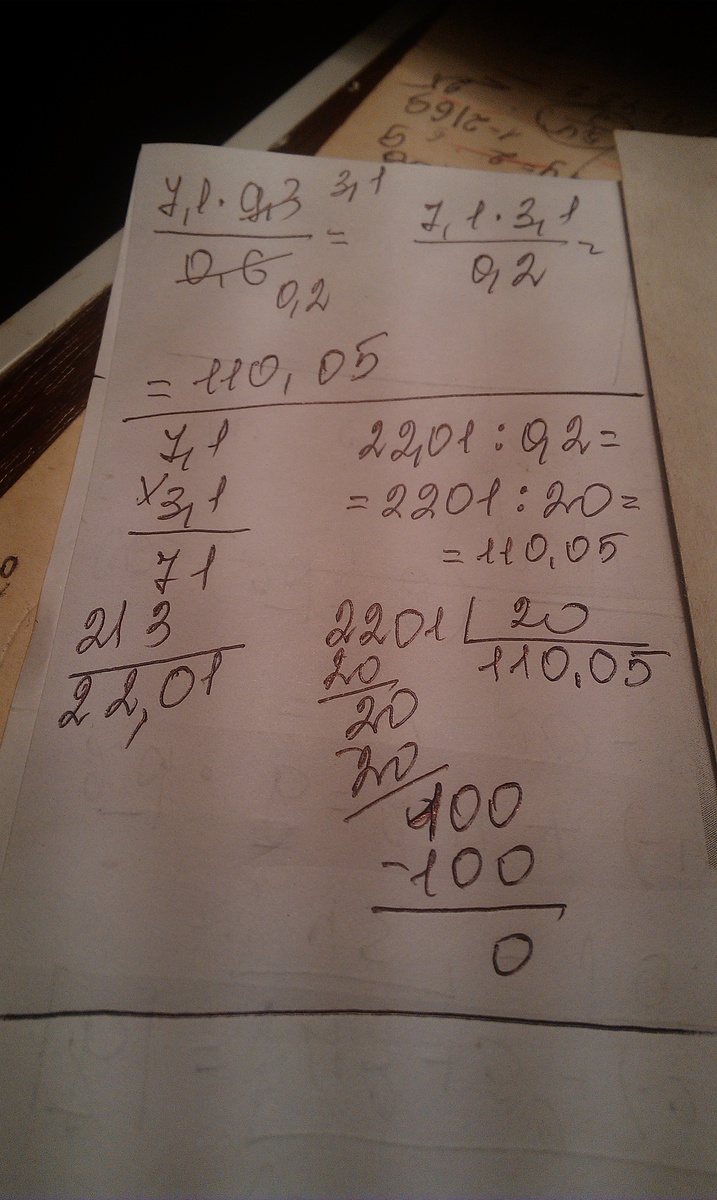 7,1 · 9,3 3,1 7,1 · 3,1
= =
0,6 0,2
0,2
= 110,05
7,1 22,01 : 0,2 =
×3,1 = 2201 : 20 =
71 = 110,05
213 2201 20
22,01 20 110,05
20
20
100
-100
0
1-2169